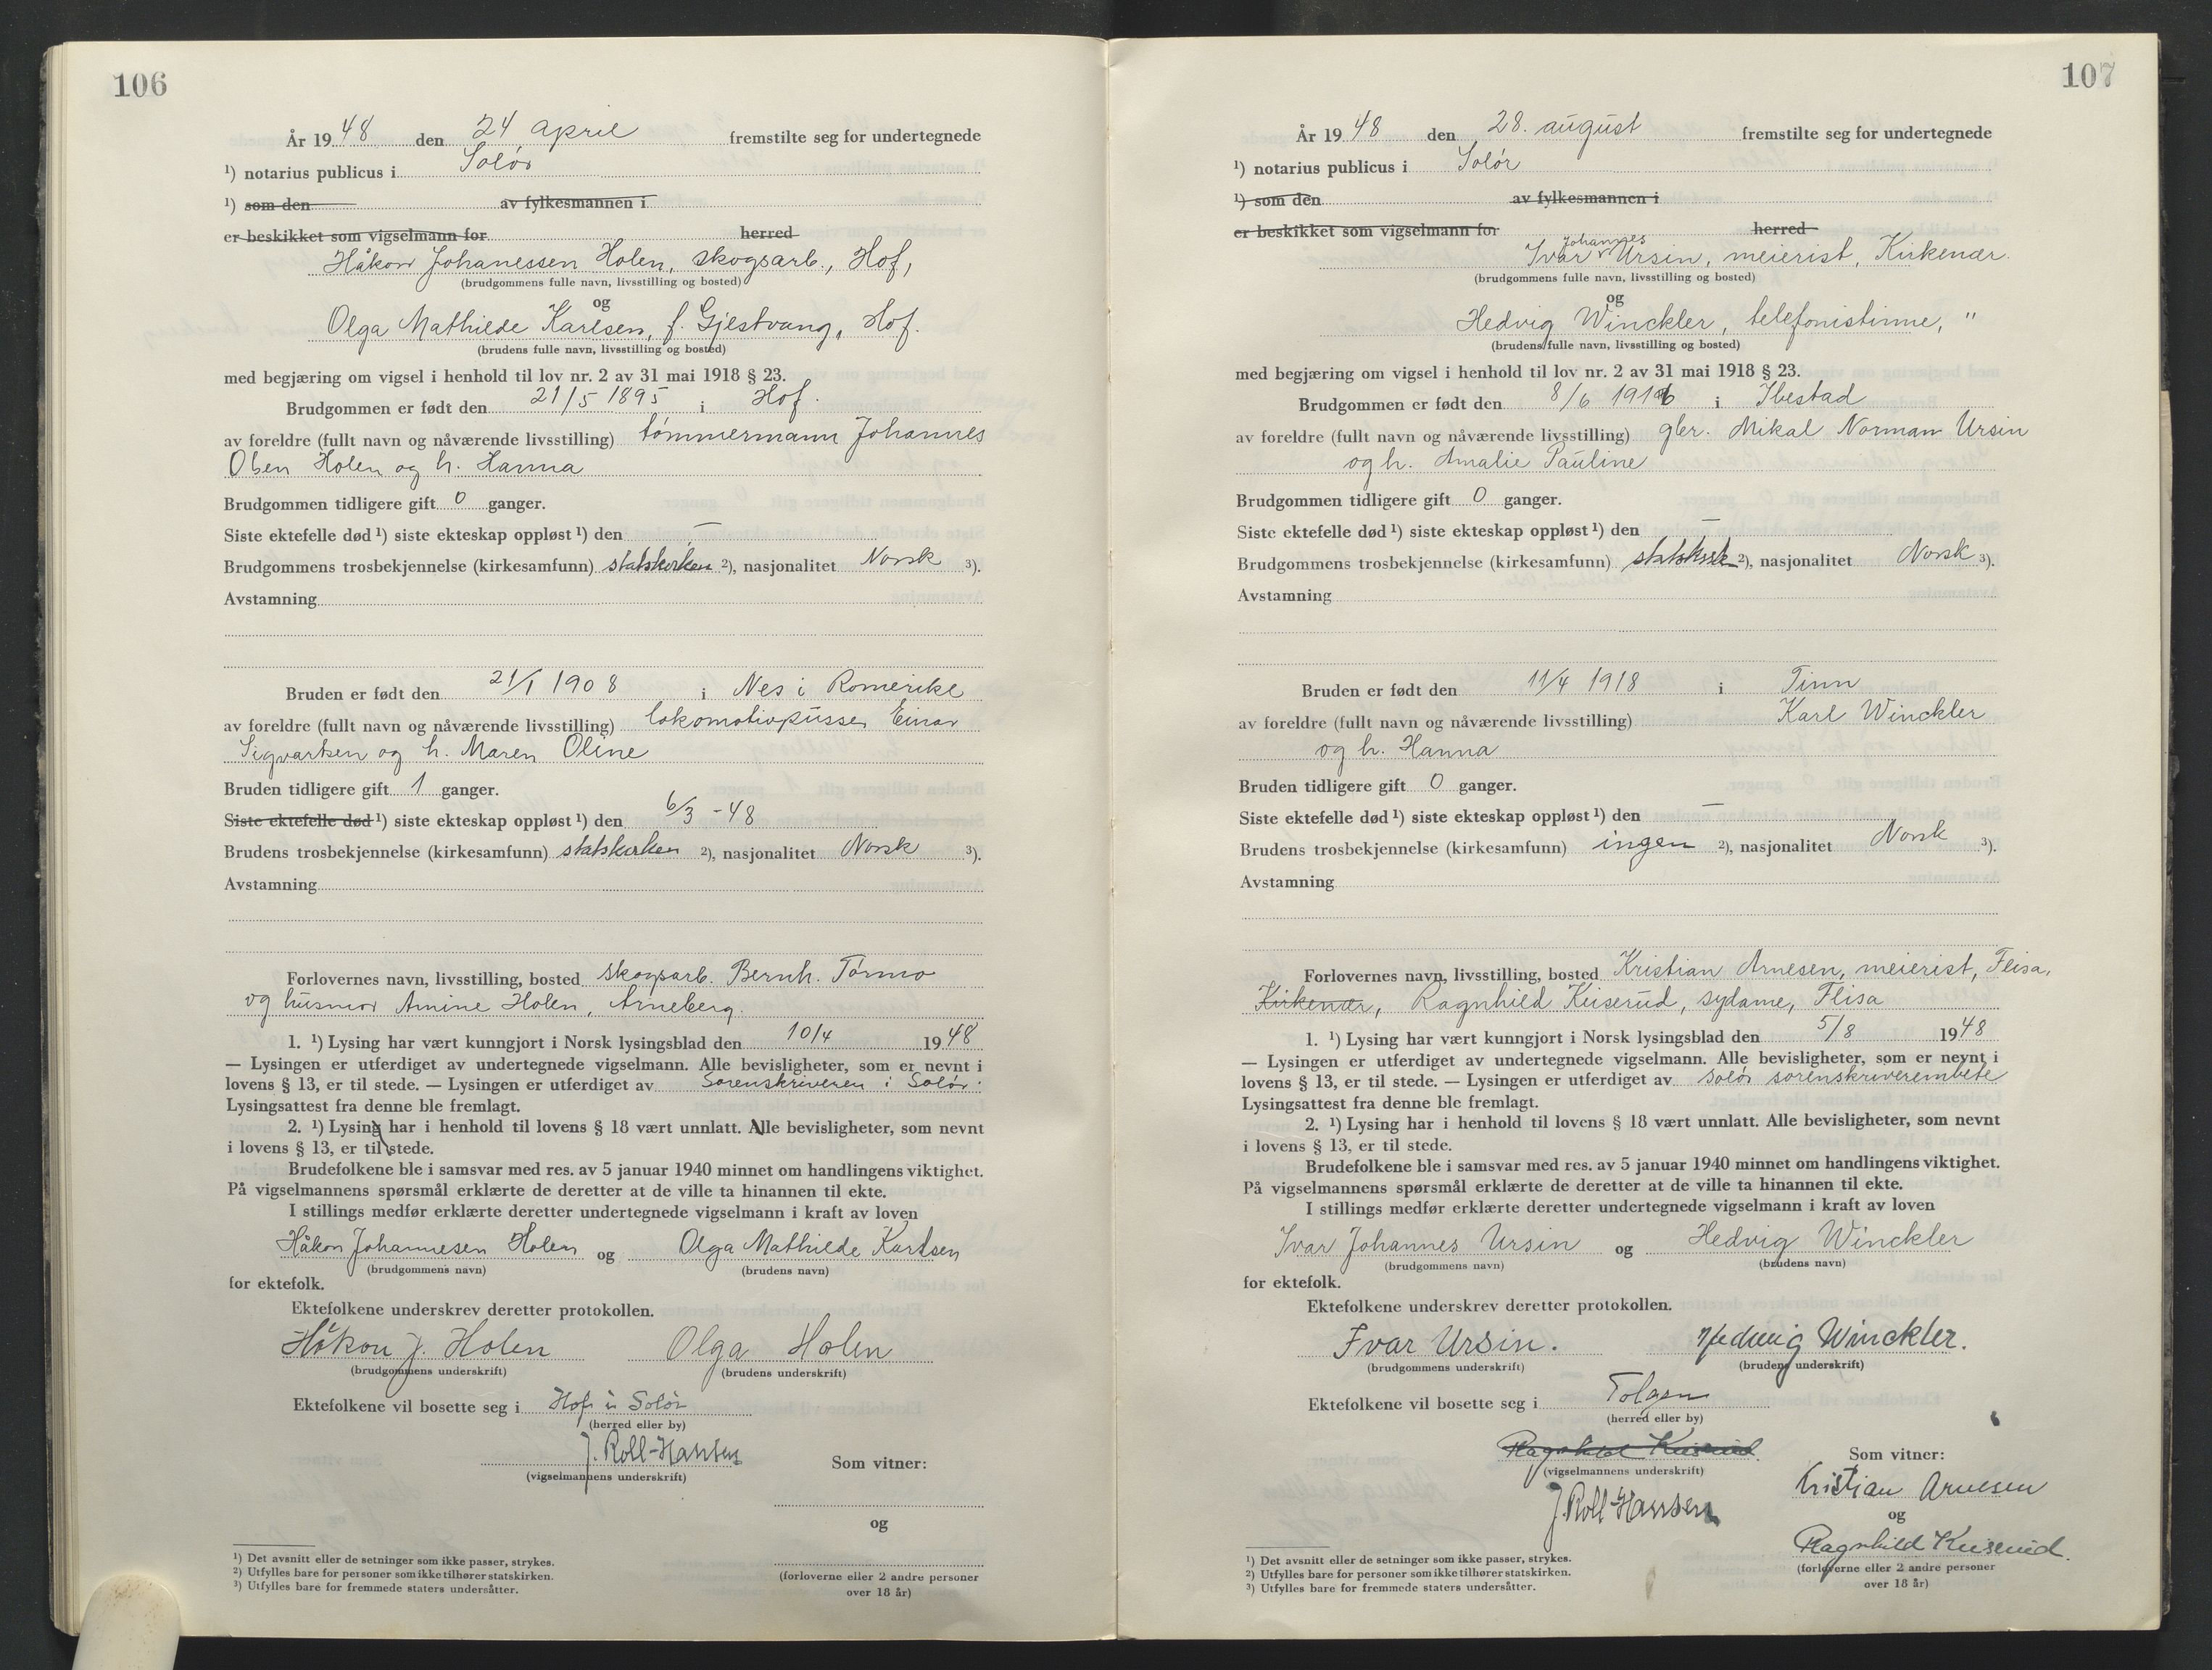 106
År 1948 den 24 april fremstilte seg for undertegnede
¹) notarius publicus i Solør
¹) som den av fylkesmannen i
er beskikket som vigselmann for herred
Håkon Johanessen Holen, skogsarb., Hof,
(brudgommens fulle navn, livsstilling og bosted)
og
Olga Mathilde Karlsen, f. Gjestvang, Hof.
(brudens fulle navn, livsstilling og bosted)
med begjæring om vigsel i henhold til lov nr. 2 av 31 mai 1918 § 23.
Brudgommen er født den 21/5 1895 i Hof.
av foreldre (fullt navn og nåværende livsstilling) tømmermann Johannes
Olsen Holen og h. Hanna
Brudgommen tidligere gift 0 ganger.
Siste ektefelle død ¹) siste ekteskap oppløst ¹) den —
Brudgommens trosbekjennelse (kirkesamfunn) statskirken ²), nasjonalitet Norsk ³).
Avstamning
Bruden er født den 21/1 1908 i Nes i Romerike
av foreldre (fullt navn og nåværende livsstilling) lokomotivpusser Einar
Sigvartsen og h. Maren Oline
Bruden tidligere gift 1 ganger.
Siste ektefelle død ¹) siste ekteskap oppløst ¹) den 6/3 -48
Brudens trosbekjennelse (kirkesamfunn) statskirken ²), nasjonalitet Norsk ³).
Avstamning
Forlovernes navn, livsstilling, bosted skogsarb. Bernh. Tørmo
og husmor Amine Holen, Arneberg.
1. ¹) Lysing har vært kunngjort i Norsk lysingsblad den 10/4 1948
— Lysingen er utferdiget av undertegnede vigselmann. Alle bevisligheter, som er nevnt i
lovens § 13, er til stede. — Lysingen er utferdiget av Sorenskriveren i Solør.
Lysingsattest fra denne ble fremlagt.
2. ¹) Lysing har i henhold til lovens § 18 vært unnlatt. Alle bevisligheter, som nevnt
i lovens § 13, er til stede.
Brudefolkene ble i samsvar med res. av 5 januar 1940 minnet om handlingens viktighet.
På vigselmannens spørsmål erklærte de deretter at de ville ta hinannen til ekte.
I stillings medfør erklærte deretter undertegnede vigselmann i kraft av loven
Håkon Johannesen Holen og Olga Mathilde Karlsen
(brudgommens navn) (brudens navn)
for ektefolk.
Ektefolkene underskrev deretter protokollen.
Håkon J. Holen Olga Holen
(brudgommens underskrift) (brudens underskrift)
Ektefolkene vil bosette seg i Hof i Solør
(herred eller by)
J. Roll-Hansen
(vigselmannens underskrift) Som vitner:
og
¹) Det avsnitt eller de setninger som ikke passer, strykes.
²) Utfylles bare for personer som ikke tilhører statskirken.
³) Utfylles bare for fremmede staters undersåtter.
(forloverne eller 2 andre personer
over 18 år)
107
År 1948 den 28. august fremstilte seg for undertegnede
¹) notarius publicus i Solør
¹) som den av fylkesmannen i
er beskikket som vigselmann for herred
Johannes
Ivar Ursin, meierist, Kirkenær.
(brudgommens fulle navn, livsstilling og bosted)
og
Hedvig Winckler, telefonistinne, "
(brudens fulle navn, livsstilling og bosted)
med begjæring om vigsel i henhold til lov nr. 2 av 31 mai 1918 § 23.
Brudgommen er født den 8/6 1916 i Ibestad
av foreldre (fullt navn og nåværende livsstilling) gbr. Mikal Norman Ursin
og h. Amalie Pauline
Brudgommen tidligere gift 0 ganger.
Siste ektefelle død ¹) siste ekteskap oppløst ¹) den —
Brudgommens trosbekjennelse (kirkesamfunn) statskirk ²), nasjonalitet Norsk ³).
Avstamning
Bruden er født den 11/4 1918 i Tinn
av foreldre (fullt navn og nåværende livsstilling) Karl Winckler
og h. Hanna
Bruden tidligere gift 0 ganger.
Siste ektefelle død ¹) siste ekteskap oppløst ¹) den —
Brudens trosbekjennelse (kirkesamfunn) ingen ²), nasjonalitet Norsk ³).
Avstamning
Forlovernes navn, livsstilling, bosted Kristian Arnesen, meierist, Flisa,
Kirkenær, Ragnhild Kuiserud, sydame, Flisa
1. ¹) Lysing har vært kunngjort i Norsk lysingsblad den 5/8 1948
— Lysingen er utferdiget av undertegnede vigselmann. Alle bevisligheter, som er nevnt i
lovens § 13, er til stede. — Lysingen er utferdiget av Solør sorenskriverembete
Lysingsattest fra denne ble fremlagt.
2. ¹) Lysing har i henhold til lovens § 18 vært unnlatt. Alle bevisligheter, som nevnt
i lovens § 13, er til stede.
Brudefolkene ble i samsvar med res. av 5 januar 1940 minnet om handlingens viktighet.
På vigselmannens spørsmål erklærte de deretter at de ville ta hinannen til ekte.
I stillings medfør erklærte deretter undertegnede vigselmann i kraft av loven
Ivar Johannes Ursin og Hedvig Winckler
(brudgommens navn) (brudens navn)
for ektefolk.
Ektefolkene underskrev deretter protokollen.
Ivar Ursin. Hedwig Winckler.
(brudgommens underskrift) (brudens underskrift)
Ektefolkene vil bosette seg i Tolgen
(herred eller by)
Ragnhild Kuiserud
(vigselmannens underskrift) Som vitner:
J. Roll-Hansen Kristian Arnesen
og
Ragnhild Kuiserud.
¹) Det avsnitt eller de setninger som ikke passer, strykes.
²) Utfylles bare for personer som ikke tilhører statskirken.
³) Utfylles bare for fremmede staters undersåtter.
(forloverne eller 2 andre personer
over 18 år)